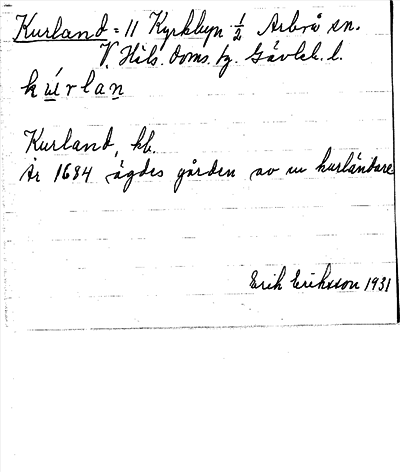 Kurland = 11 Kyrkbyn 1/2 Arbrå sn.
V. Häls. doms. fg. Gävleb. l.
kúrlan
Kurland, kb.
År 1684 ägdes gården av en kurländare
Erik Eriksson 1931